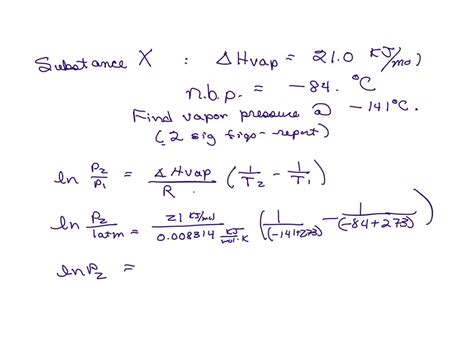 Substance X : ΔHvap = 21.0 KJ/mol
n.b.p. = -84. °C
Find vapor pressure @ -141°C.
(2 sig figs - report)
ln P2/P1 = ΔHvap/R (1/T2 - 1/T1)
ln P2/1atm = 21 KJ/mol / 0.008314 KJ/mol·K (1/(-141+273) - 1/(-84+273))
ln P2 =